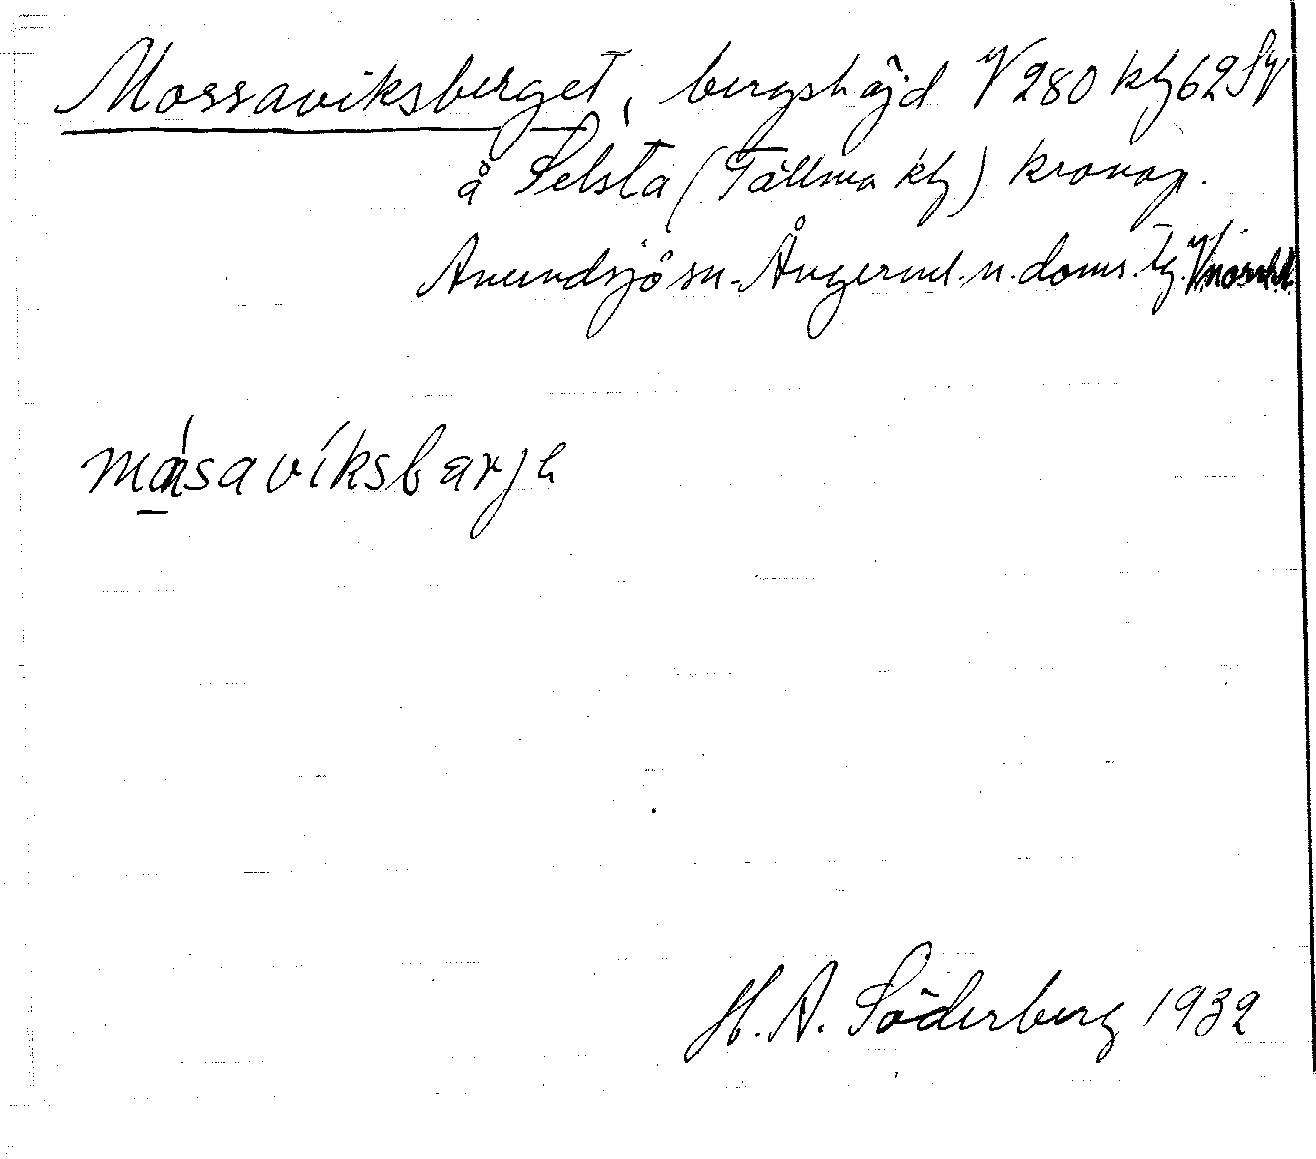 Mossaviksberget, bergshöjd V 280 kbl 62 SV
å Selsta (Tällma kbl) kronop.
Anundsjö sn. Ångerml. n. doms. tg. V/norrl.l.
måsavíksbærje
H. A. Söderberg 1932